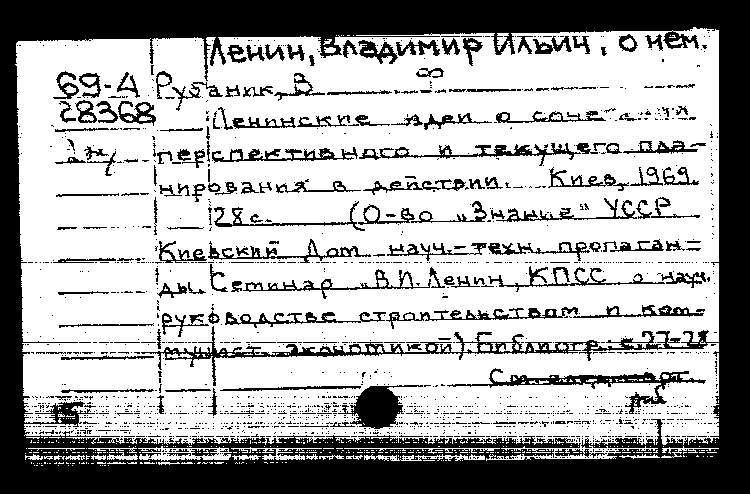 Ленин, Владимир Ильич, о нем.
69-4 Рубаник, В
28368 Ленинские идеи о сочетания
перспективного и текущего пла-
нирования в действии. Киев, 1969.
28 с. (О-во "Знание" УССР.
Киевский Дом науч.-техн. пропаган-
ды. Семинар "В.И. Ленин, КПСС о науч.
руководстве строительством и ком-
мунист. экономикой). Библиогр.: с. 27-28.
15